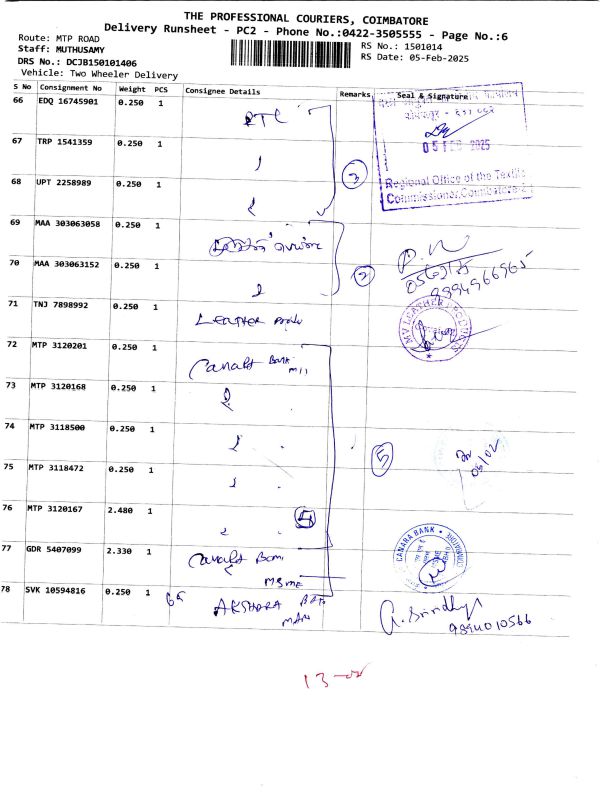 THE PROFESSIONAL COURIERS, COIMBATORE
Delivery Runsheet - PC2 - Phone No.:0422-3505555 - Page No.:6
Route: MTP ROAD
RS No.: 1501014
Staff: MUTHUSAMY
RS Date: 05-Feb-2025
DRS No.: DCJB150101406
Vehicle: Two Wheeler Delivery
S No Consignment No Weight PCS Consignee Details Remarks Seal & Signature
66 EDQ 16745901 0.250 1
67 TRP 1541359 0.250 1
05 FEB 2025
68 UPT 2258989 0.250 1 3
Regional Office of the Textile
Commissioner, Coimbatore-2
69 MAA 303063058 0.250 1
70 MAA 303063152 0.250 1 2
9994966965
71 TNJ 7898992 0.250 1 LEATHER
MV LEATHER PRODUCTS
72 MTP 3120201 0.250 1 Canara Bank
73 MTP 3120168 0.250 1
74 MTP 3118500 0.250 1 5
06/02
75 MTP 3118472 0.250 1
76 MTP 3120167 2.480 1
77 GDR 5407099 2.330 1 Canara
MSME
CANARA BANK
78 SVK 10594816 0.250 1 AKSHARA
9894010566
13